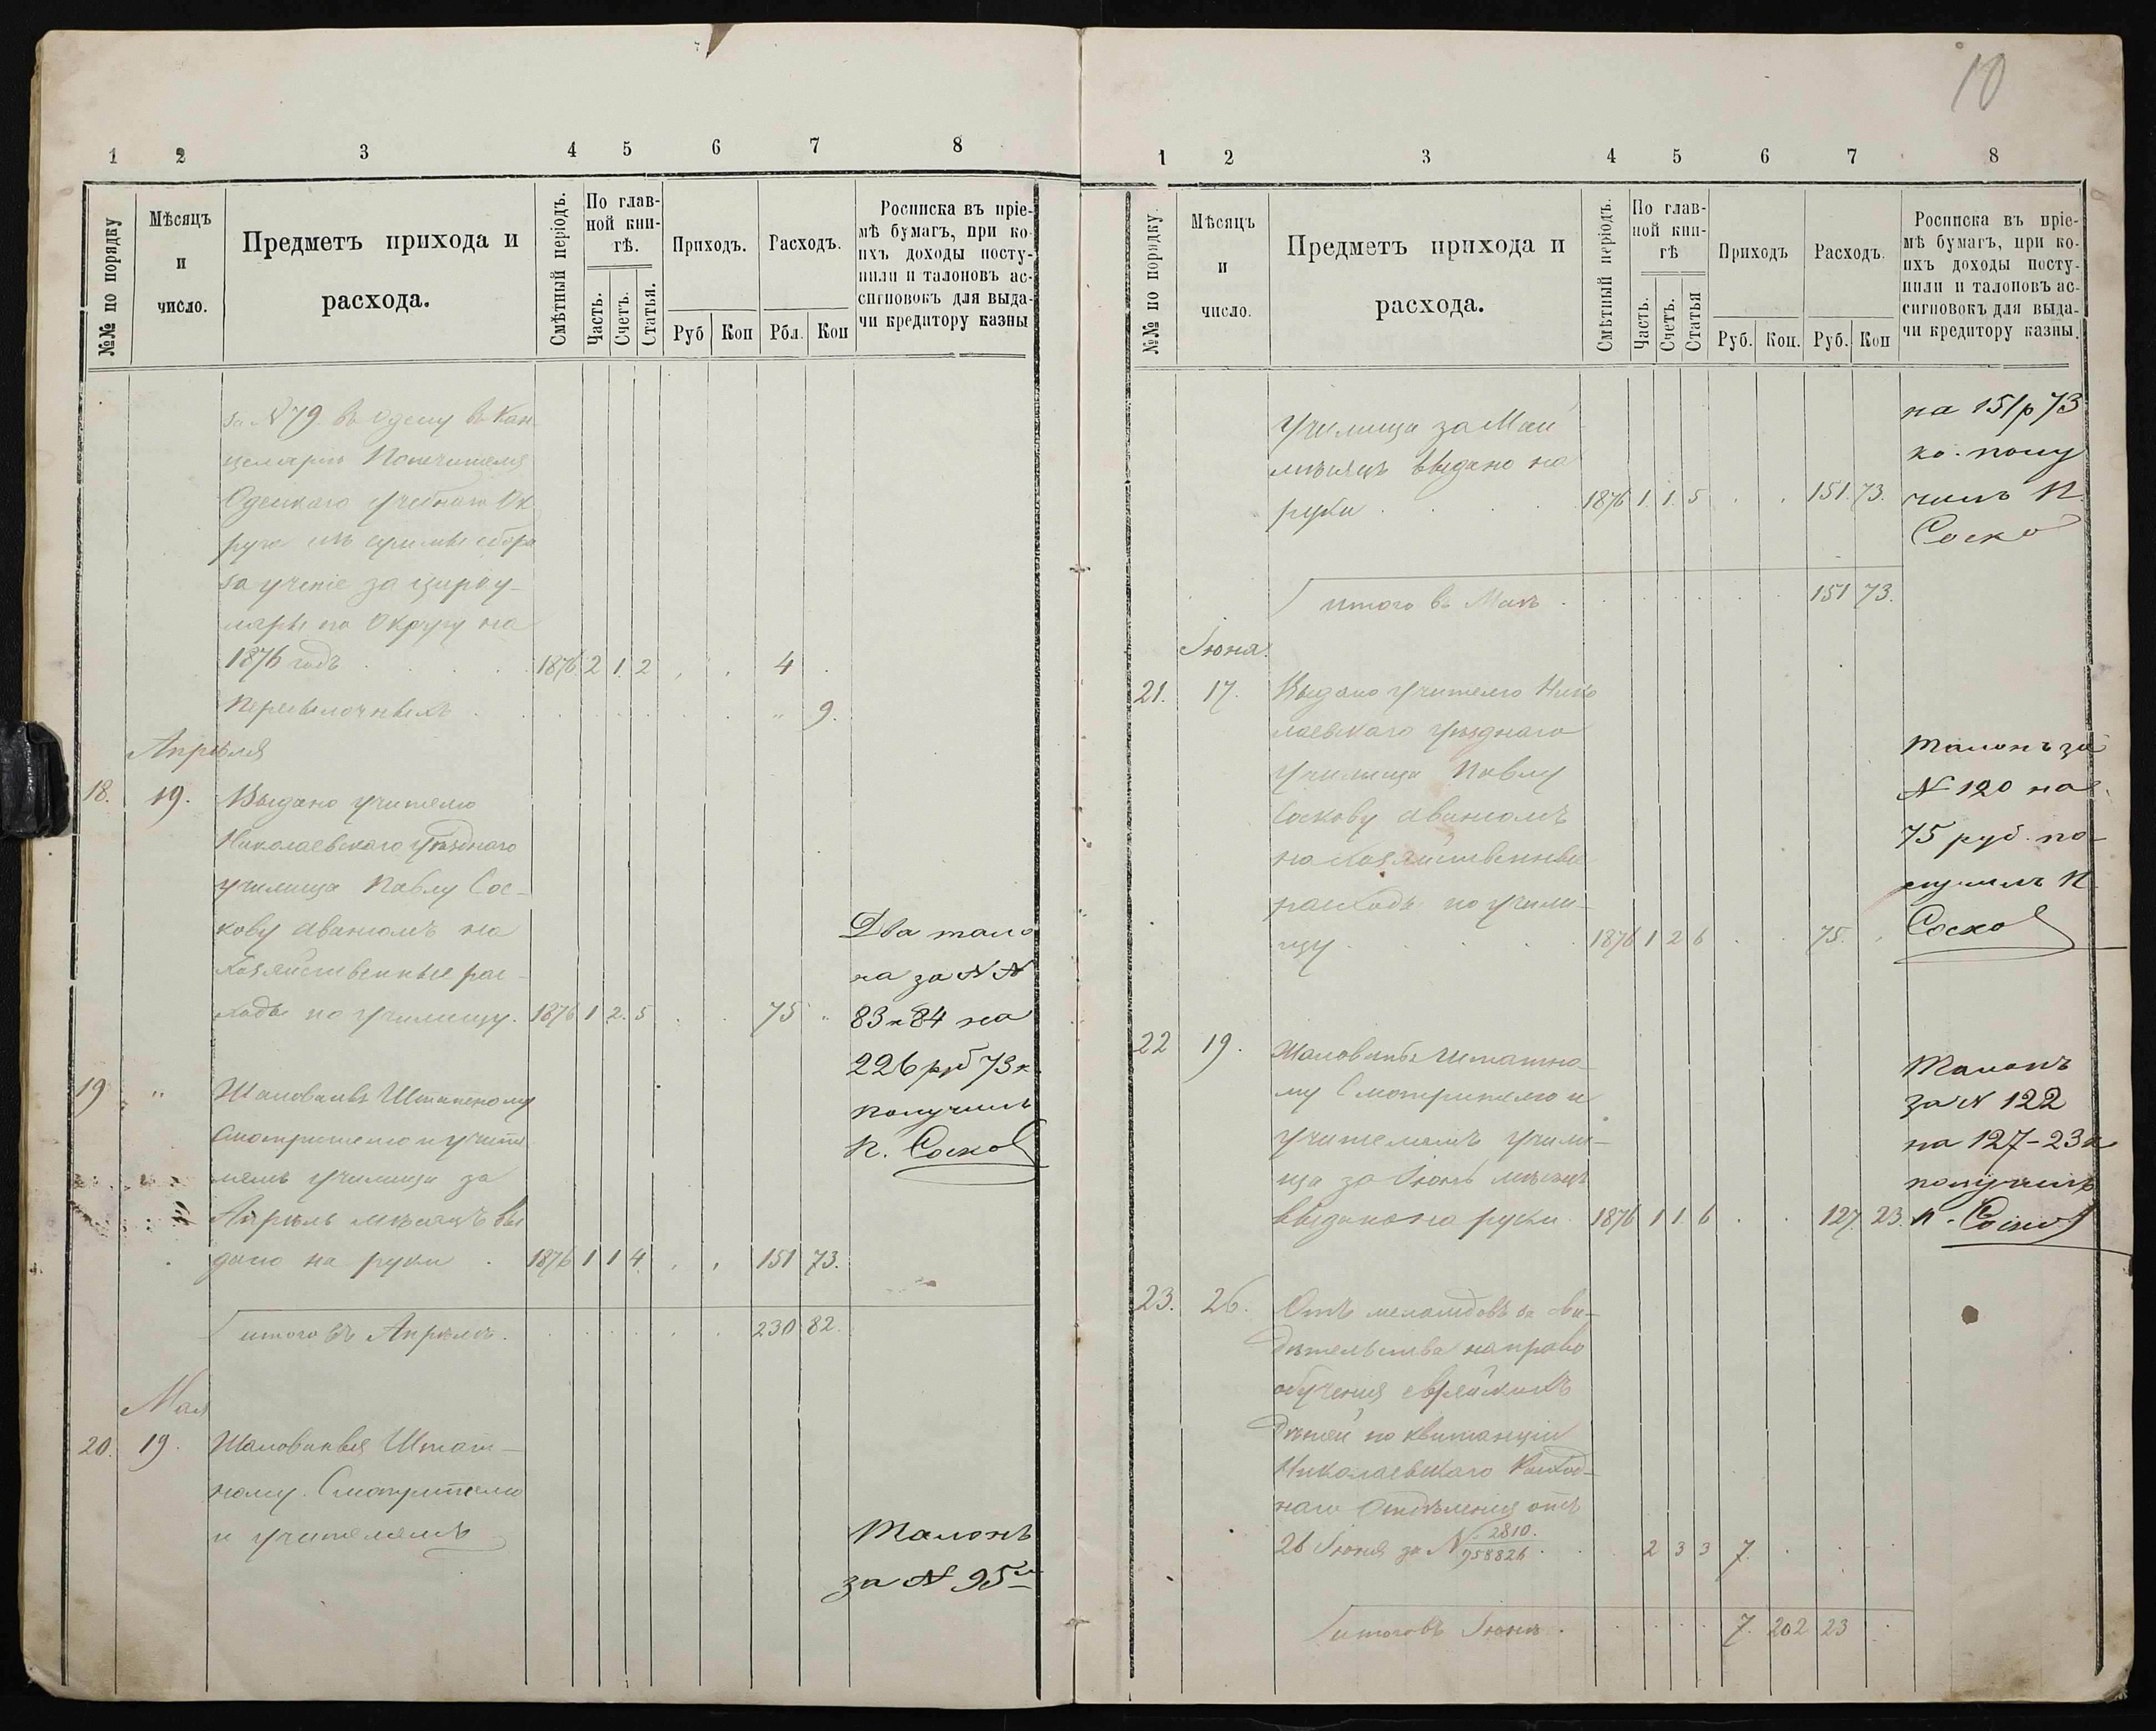 10
1 2 3 4 5 6 7 8
№№ по порядку
Мѣсяцъ
и
число.
Предметъ прихода и
расхода.
Смѣтный періодъ.
По глав-
ной кни-
гѣ.
Часть.
Счетъ.
Статья.
Приходъ.
Руб Коп
Расходъ.
Рбл. Коп
Росписка въ пріе-
мѣ бумагъ, при ко-
ихъ доходы посту-
пили и талоновъ ас-
сигновокъ для выда-
чи кредитору казны
за N 79 въ Одессу въ Кан
целярію Попечителя
Одесскаго Учебнаго Ок
руга изъ суммы сбора
за ученіе за цирку-
ляры по Округу на
1876 годъ . . . . 1876 2 1 2 . . 4 .
Пересылочныхъ . . . . . . . . " 9.
Апрѣля
18. 19. Выдано учителю
Николаевскаго уѣзднаго
училища Павлу Сос-
кову авансомъ на
хозяйственные рас-
ходы по училищу. 1876 1 2. 5 . . 75 "
Два тало
на за N N
83 и 84 на
226 руб 73 к
получилъ
П. Соско
19. " Жалованья Штатному
Смотрителю и учите
лямъ училища за
Апрѣль мѣсяцъ вы
дано на руки . 1876 1 1 4 . . 151 73.
итого въ Апрѣлѣ. . . . . . . 230 82.
Мая
20. 19. Жалованья Штат-
ному Смотрителю
и учителямъ
Талонъ
за N 95
1 2 3 4 5 6 7 8
№№ по порядку.
Мѣсяцъ
и
число.
Предметъ прихода и
расхода.
Смѣтный періодъ.
По глав-
ной кни-
гѣ
Часть.
Счетъ.
Статья
Приходъ
Руб. Коп.
Расходъ.
Руб. Коп
Росписка въ пріе-
мѣ бумагъ, при ко-
ихъ доходы посту-
пили и талоновъ ас-
сигновокъ для выда-
чи кредитору казны.
Училища за Май
мѣсяцъ выдано на
руки . . . . 1876 1. 1. 5 . . 151. 73.
на 151 р 73
ко. полу
чилъ П.
Соско
итого въ Маѣ . . . . . . . 151 73.
Іюня.
21. 17. Выдано учителю Нико
лаевскаго уѣзднаго
училища Павлу
Соскову авансомъ
на хозяйственные
расходы по учили-
щу . . . . 1876 1 2 6 . . 75. .
Талонъ за
N 120 на
75 руб. по-
лучилъ П.
Соско
22 19. Жалованья Штатно
му Смотрителю и
учителямъ учили-
ща за Іюнь мѣсяцъ
выдано на руки. 1876 1 1. 6 . . 127. 23.
Талонъ
за N 122
на 127-23 к
получилъ
П. Соско
23. 26. Отъ меламдовъ за сви-
дѣтельства на право
обученія еврейскихъ
дѣтей по квитанціи
Николаевскаго Расход-
наго Отдѣленія отъ
26 Іюня за N 2810. / 958826 . . 2 3 3 7. . . .
итого въ Іюнѣ . . . . . 7. 202 23 .